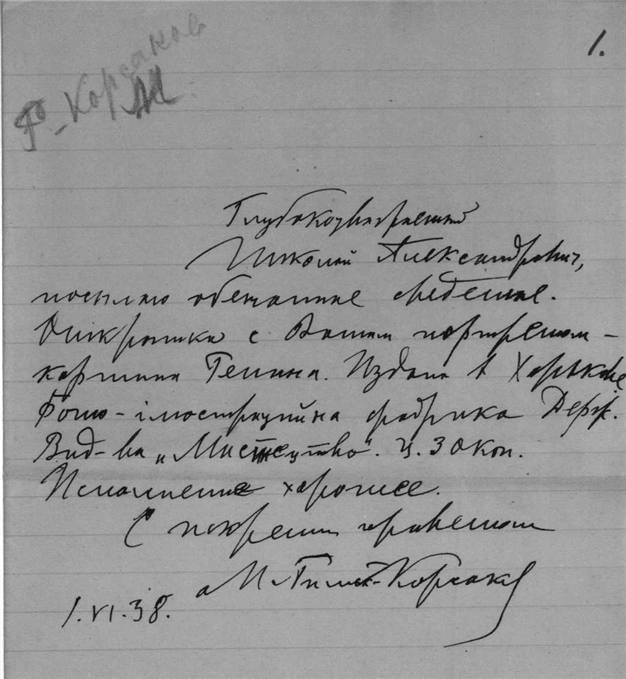 1.
Р-Корсаков
М
Глубокоуважаемый
Николай Александрович,
посылаю обещанные сведения.
Открытка с Вашим портретом –
картина Репина. Издана в Харькове
Фото-iлюстрацiйна фабрика Держ.
Вид-ва „Мистецтво". Ц. 30 коп.
Исполнение хорошее.
С искренним приветом
М Римск-Корсаков
1.VI.38.